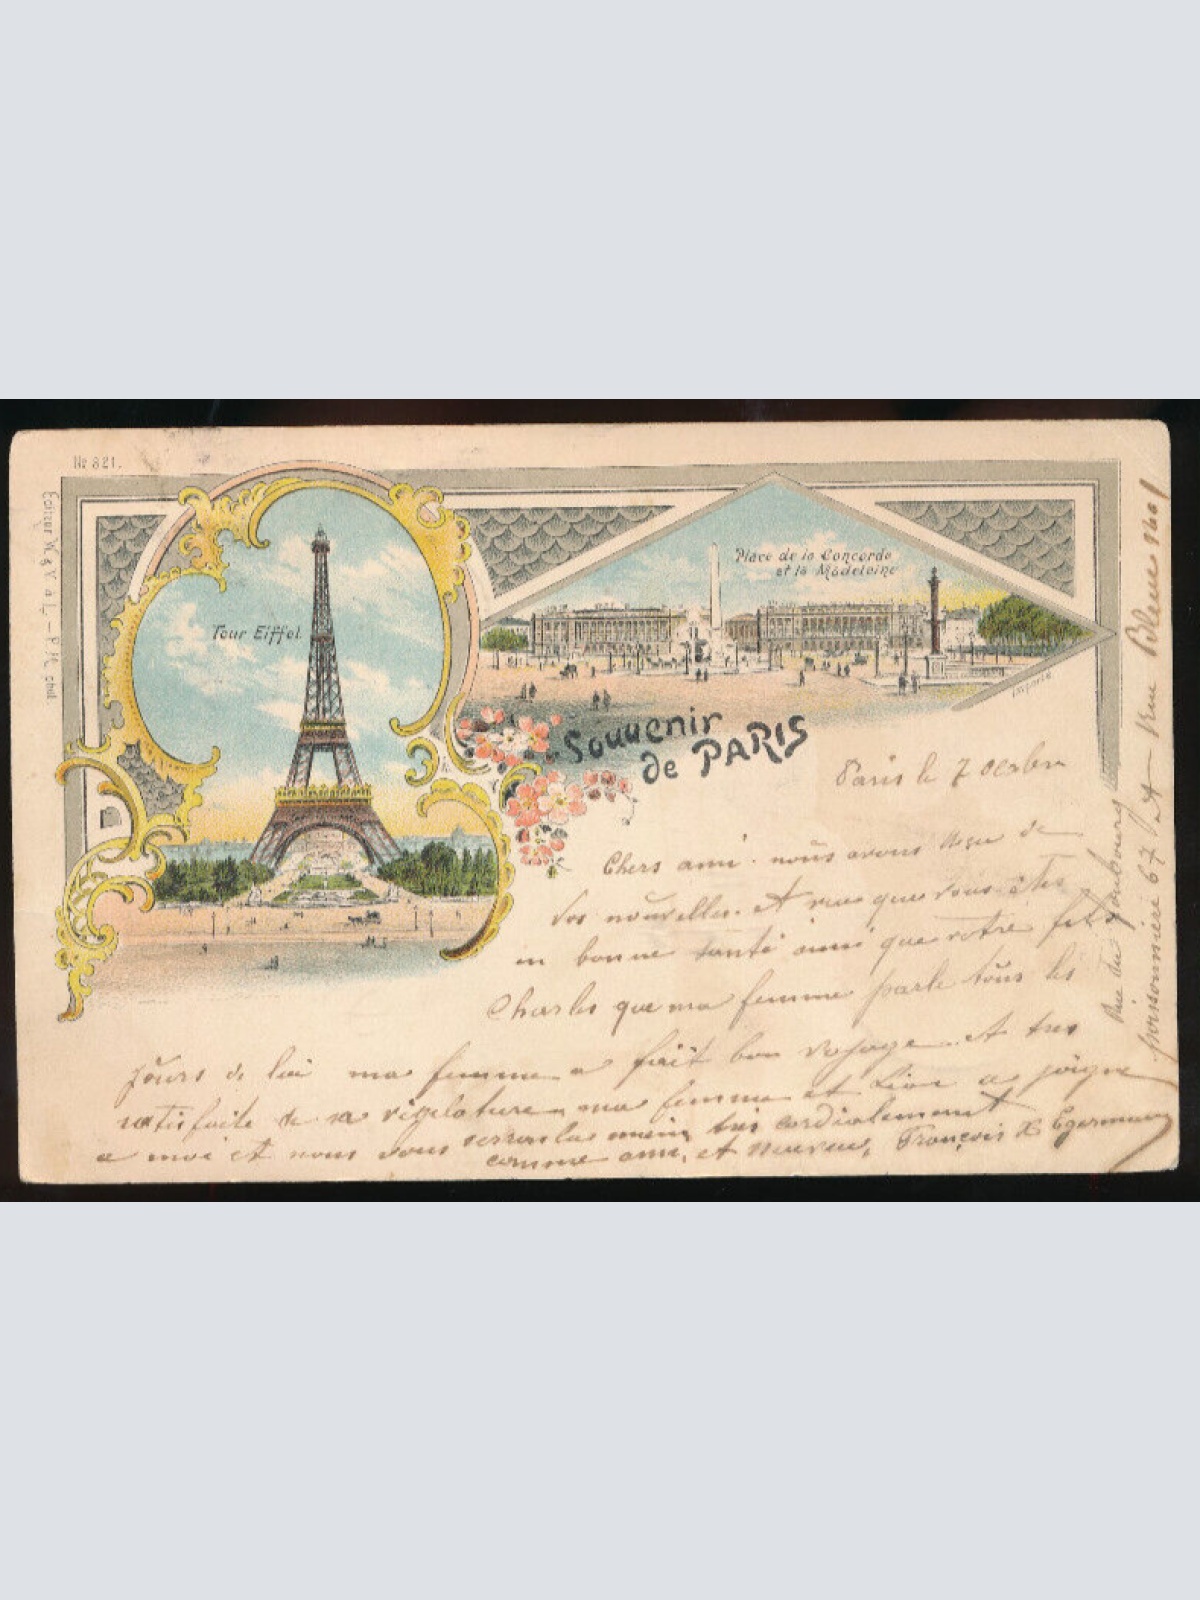 No 821.
Tour Eiffel.
Place de la Concorde
et la Madeleine
Importé
Souvenir
de PARIS
Paris le 7 octobre
Chers ami. nous avons reçu de
vos nouvelles. et que vous êtes
en bonne santé ainsi que votre fils
Charles que ma femme parle tous les
jours de lui ma femme a fait bon voyage. et tres
satisfaite de sa ma femme et a joigne
a moi et nous vous serrons la main tres cordialement
comme ami, et François &
Rue du faubourg
poissonniere 67 et rue Bleue